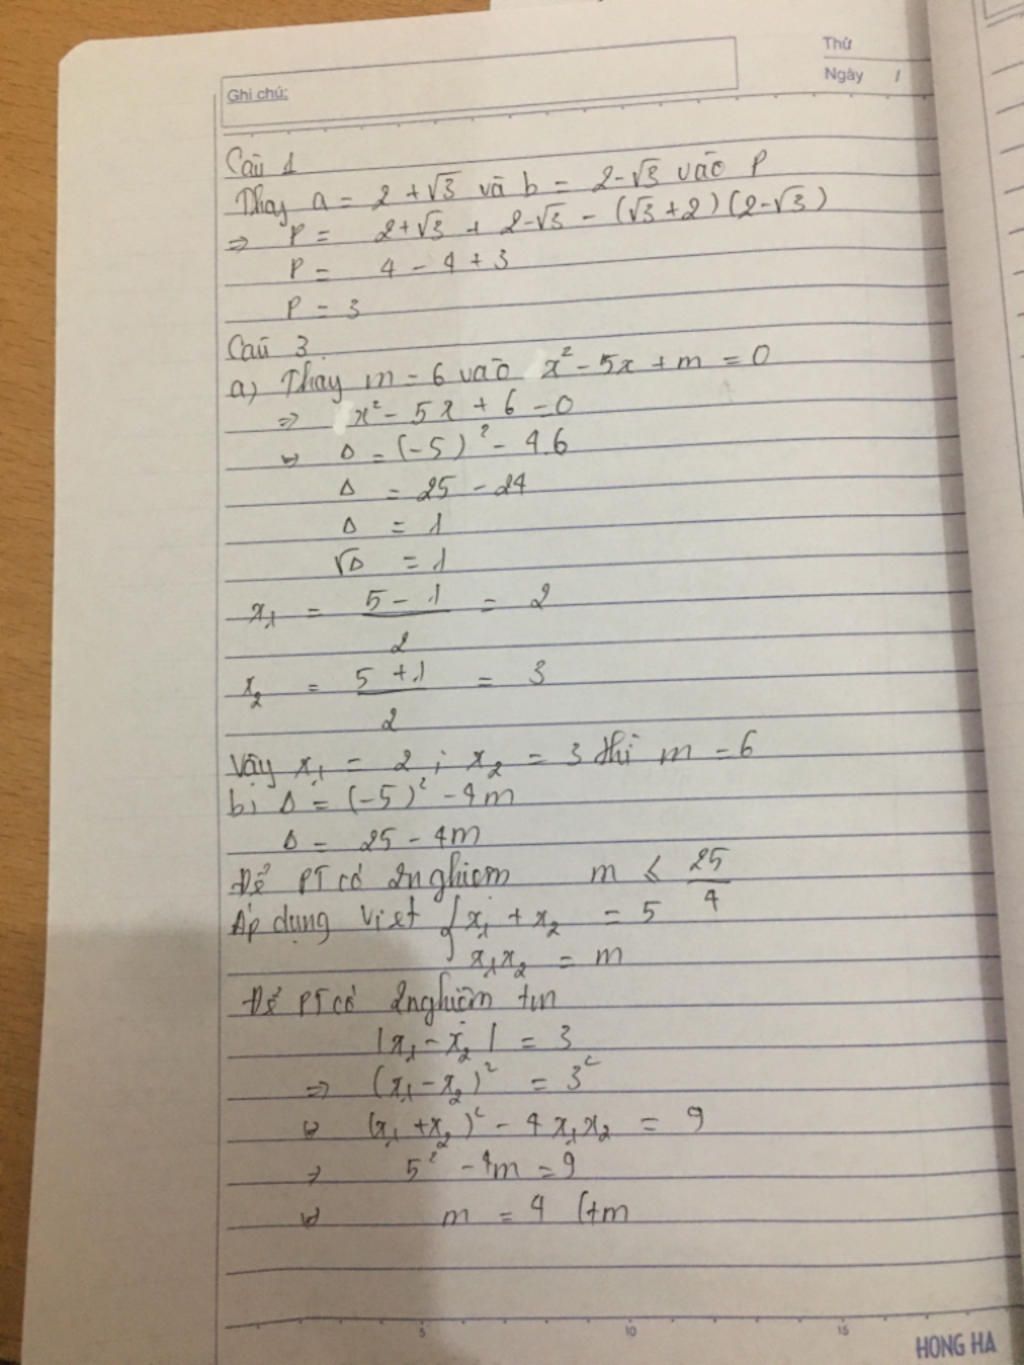 Thứ
Ngày /
Ghi chú:
Câu 1
Thay a = 2 + √3 và b = 2-√3 vào P
⇒ P = 2+√3 + 2-√3 - (√3+2)(2-√3)
P = 4 - 4 + 3
P = 3
Câu 3.
a) Thay m = 6 vào x² - 5x + m = 0
⇒ x² - 5x + 6 = 0
⇔ Δ = (-5)² - 4.6
Δ = 25 - 24
Δ = 1
√Δ = 1
x₁ = (5 - 1)/2 = 2
x₂ = (5 + 1)/2 = 3
Vậy x₁ = 2 ; x₂ = 3 thì m = 6
b) Δ = (-5)² - 4m
Δ = 25 - 4m
Để PT có 2 nghiệm m ≤ 25/4
Áp dụng Viet { x₁ + x₂ = 5
x₁x₂ = m
Để PT có 2 nghiệm tm
|x₁ - x₂| = 3
⇒ (x₁ - x₂)² = 3²
⇔ (x₁ + x₂)² - 4x₁x₂ = 9
⇒ 5² - 4m = 9
⇔ m = 4 (tm
5 10 15
HONG HA